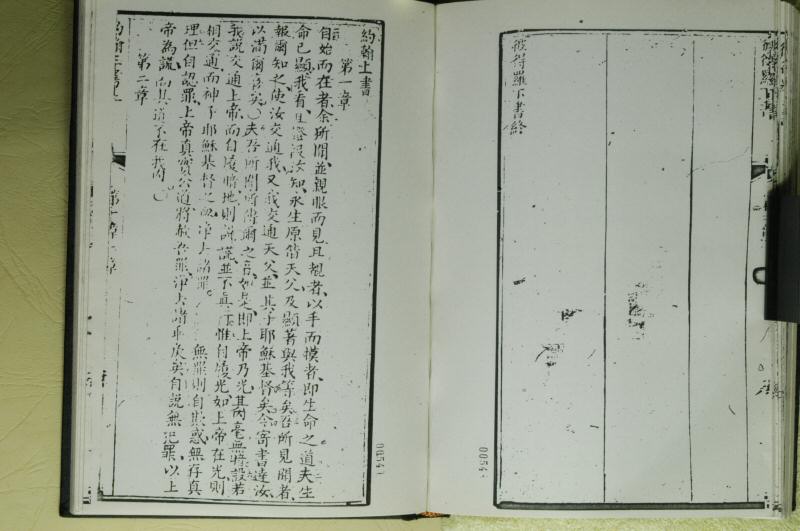 彼得羅下書終
約翰上書
第一章
自始而在者、余所聞、並親眼而見、且覩者、以手而摸者、即生命之道、夫生
命已顯、我看、且證汝知、永生原偕天父、及顯著與我等矣、吾所見聞者、
報爾知之、使汝交通我、又我交通天父、並其子耶穌基督矣、今寄書達汝、
以滿爾喜矣、夫吾所聞所傳爾之言、如是、即上帝乃光、其內毫無暗、設若
我說交通上帝、而自履暗地、則說謊、並不真、惟自履光、如上帝在光、則
相交通、而神子耶穌基督之血、淨去諸罪、無罪、則自欺惑、無存真
理、但自認罪、上帝真實公道、將赦吾罪、淨去諸乖戾矣、自說無犯罪、以上
帝為謊、而其道不在我內、
第二章
0054
0054